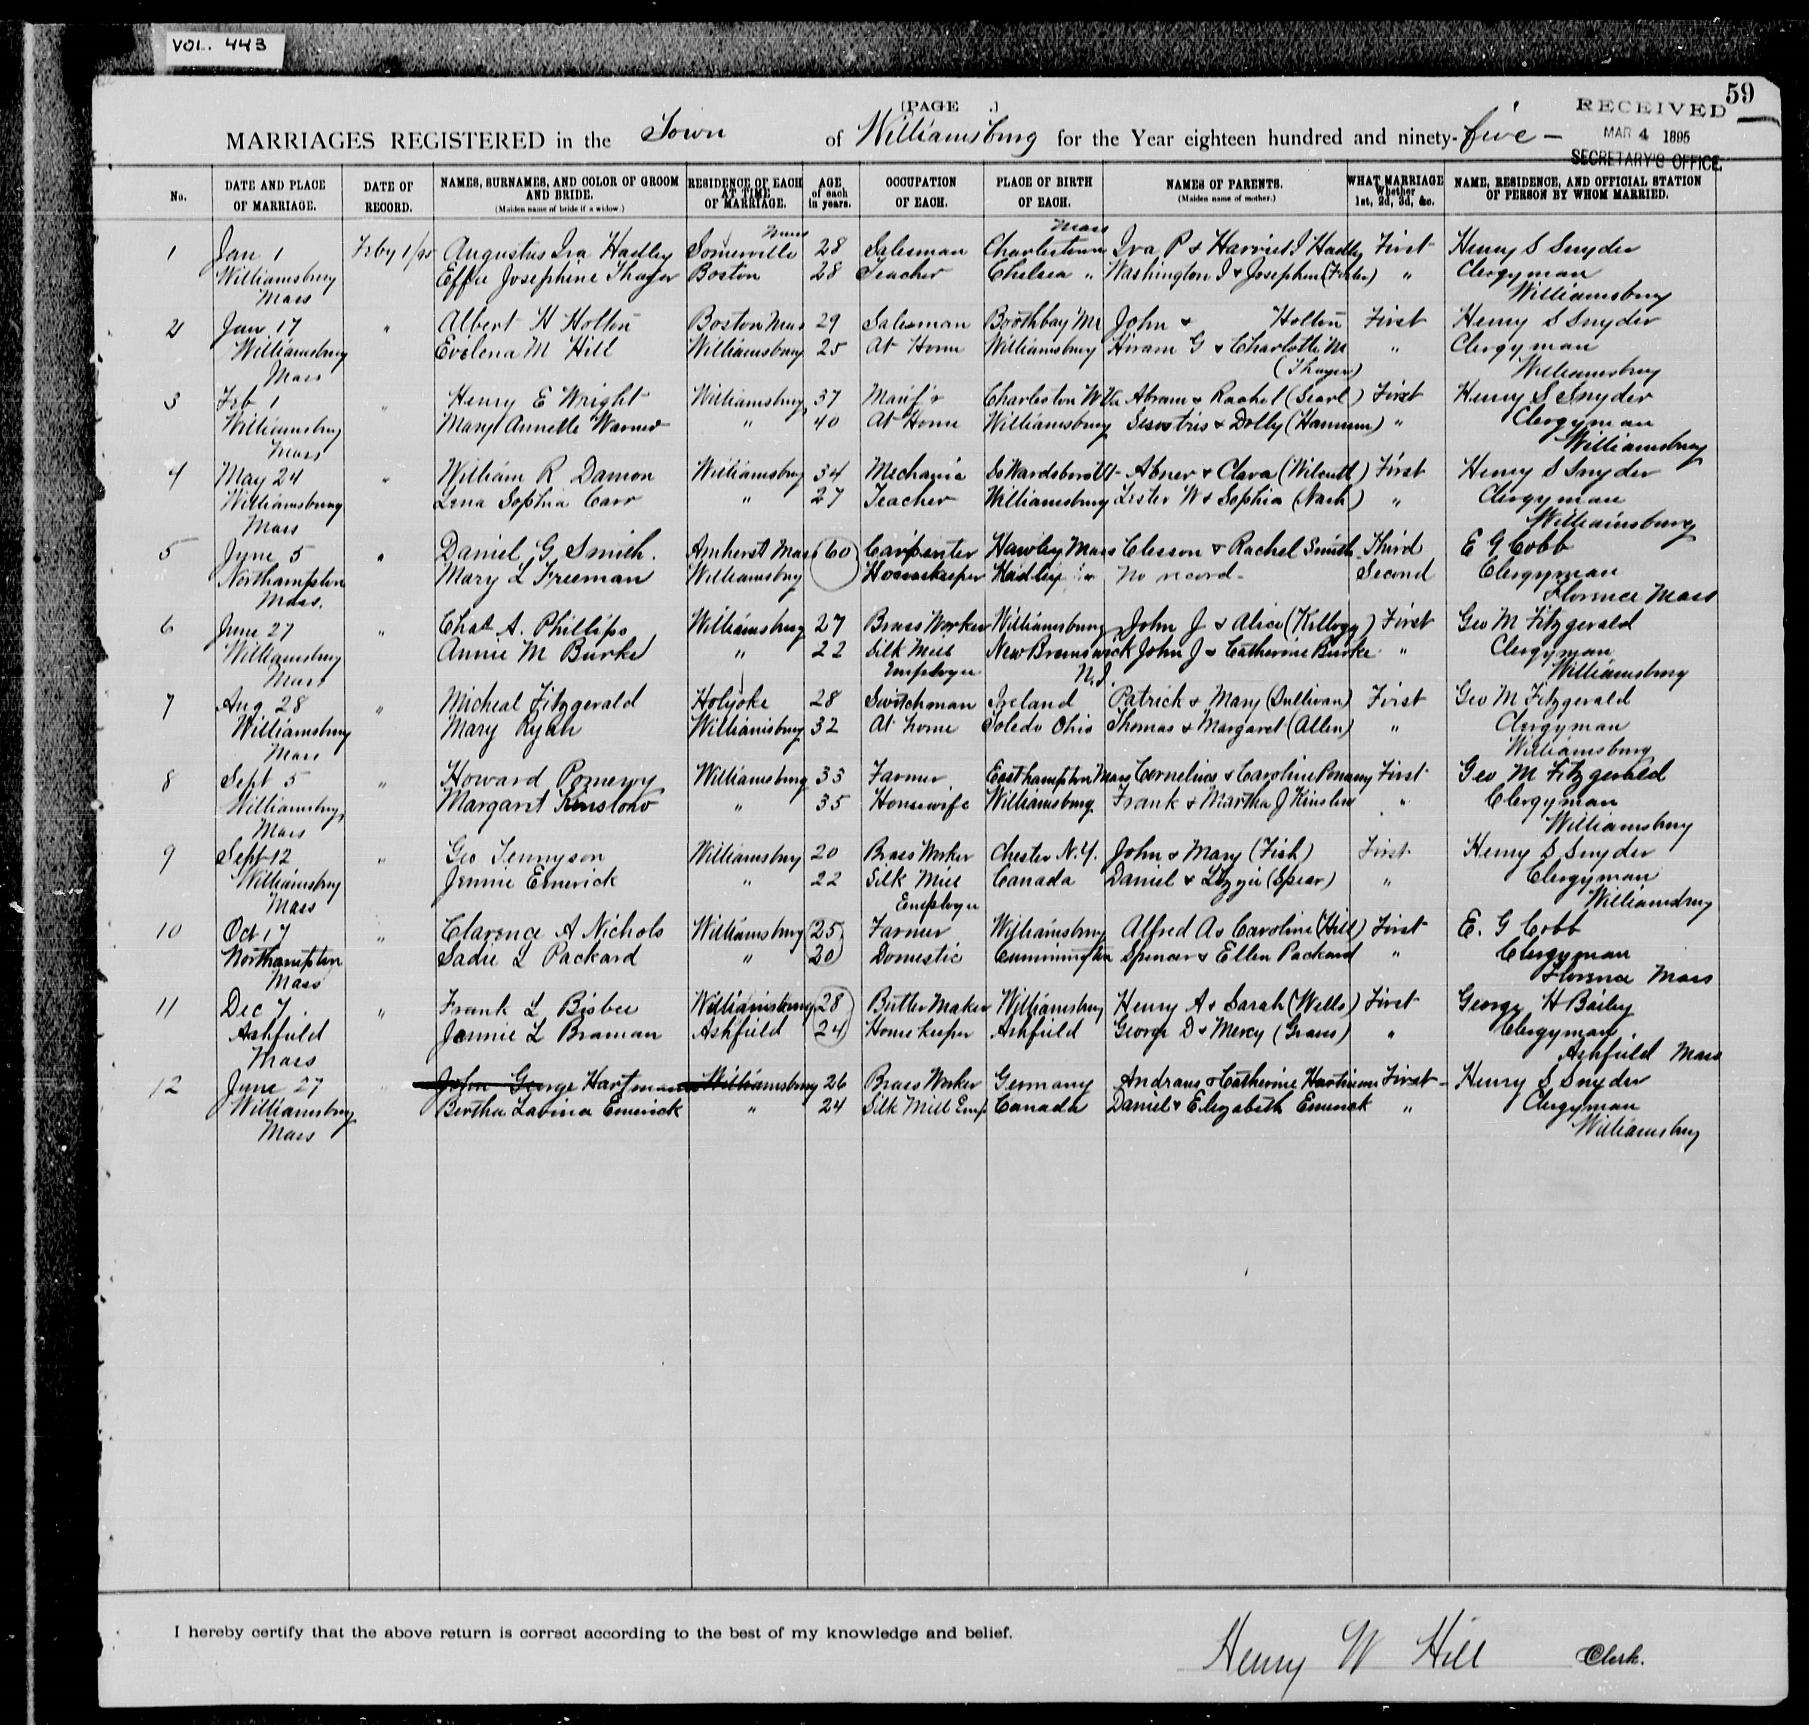 VOL. 443
59
[PAGE .]
RECEIVED
MAR 4 1896
SECRETARY'S OFFICE.
MARRIAGES REGISTERED in the Town of Williamsburg for the Year eighteen hundred and ninety-five —
No. DATE AND PLACE OF MARRIAGE. DATE OF RECORD. NAMES, SURNAMES, AND COLOR OF GROOM AND BRIDE. (Maiden name of bride if a widow.) RESIDENCE OF EACH AT TIME OF MARRIAGE. AGE of each in years. OCCUPATION OF EACH. PLACE OF BIRTH OF EACH. NAMES OF PARENTS. (Maiden name of mother.) WHAT MARRIAGE Whether 1st, 2d, 3d, &c. NAME, RESIDENCE, AND OFFICIAL STATION OF PERSON BY WHOM MARRIED.
Mass Mass
1 Jan 1 Augustus Ira Hadley Somerville 28 Salesman Charlestown Ira P & Harriet Hadley First Henry S Snyder
Williamsburg Effie Josephine Thayer Boston 28 Teacher Chelsea " Washington I & Josephine " Clergyman
Mass Williamsburg
2 Jan 17 " Albert H Holton Boston Mass 29 Salesman Boothbay Me John & Holton First Henry S Snyder
Williamsburg Evelena M Hill Williamsburg 25 At Home Williamsburg Hiram G & Charlotte M " Clergyman
Mass (Thayer) Williamsburg
3 Feb 1 " Henry E Wright Williamsburg 37 Manf'r Charleston Abram & Rachel (Searl) First Henry S Snyder
Williamsburg Mary Annette Warner " 40 At Home Williamsburg Sesostris & Dolly (Hannum) " Clergyman
Mass Williamsburg
4 May 24 " William R Damon Williamsburg 34 Mechanic So Wardsboro Vt Abner & Clara (Wilcutt) First Henry S Snyder
Williamsburg Lena Sophia Carr " 27 Teacher Williamsburg Lester W & Sophia (Nash) " Clergyman
Mass Williamsburg
5 June 5 " Daniel G Smith. Amherst Mass 60 Carpenter Hawley Mass Clesson & Rachel Smith Third E G Cobb
Northampton Mary L Freeman Williamsburg Housekeeper Hadley " No record - Second Clergyman
Mass. Florence Mass
6 June 27 " Chas A. Phillips Williamsburg 27 Brass Worker Williamsburg John J & Alice (Kellogg) First Geo M Fitzgerald
Williamsburg Annie M Burke " 22 Silk Mill New Brunswick John J & Catherine Burke " Clergyman
Mass Employee N.J. Williamsburg
7 Aug 28 " Micheal Fitzgerald Holyoke 28 Switchman Ireland Patrick & Mary (Sullivan) First Geo M Fitzgerald
Williamsburg Mary Ryan Williamsburg 32 At home Toledo Ohio Thomas & Margaret (Allen) " Clergyman
Mass Williamsburg
8 Sept 5 " Howard Pomeroy Williamsburg 33 Farmer Easthampton Mass Cornelius & Caroline Pomeroy First Geo M Fitzgerald
Williamsburg Margaret Kinslow " 35 Housewife Williamsburg Frank & Martha J Kinslow " Clergyman
Mass Williamsburg
9 Sept 12 " Geo Tennyson Williamsburg 20 Brass Worker Chester N.Y. John & Mary (Fish) First Henry S Snyder
Williamsburg Jennie Emerick " 22 Silk Mill Canada Daniel & Lizzie (Spear) " Clergyman
Mass Employee Williamsburg
10 Oct 17 " Clarence A Nichols Williamsburg 25 Farmer Williamsburg Alfred A & Caroline (Hill) First E. G Cobb
Northampton Sadie L Packard " 20 Domestic Cummington Spencer & Ellen Packard " Clergyman
Mass Florence Mass
11 Dec 7 " Frank L Bisbee Williamsburg 28 Butter Maker Williamsburg Henry A & Sarah (Wells) First George H Bailey
Ashfield Jennie L Braman Ashfield 24 House keeper Ashfield George D & Mercy (Graves) " Clergyman
Mass Ashfield Mass
12 June 27 " John George Hartman Williamsburg 26 Brass Worker Germany Andraus & Catherine Hartman First Henry S Snyder
Williamsburg Bertha Lavina Emerick " 24 Silk Mill Emp. Canada Daniel & Elizabeth Emerick " Clergyman
Mass Williamsburg
I hereby certify that the above return is correct according to the best of my knowledge and belief.
Henry W Hill Clerk.